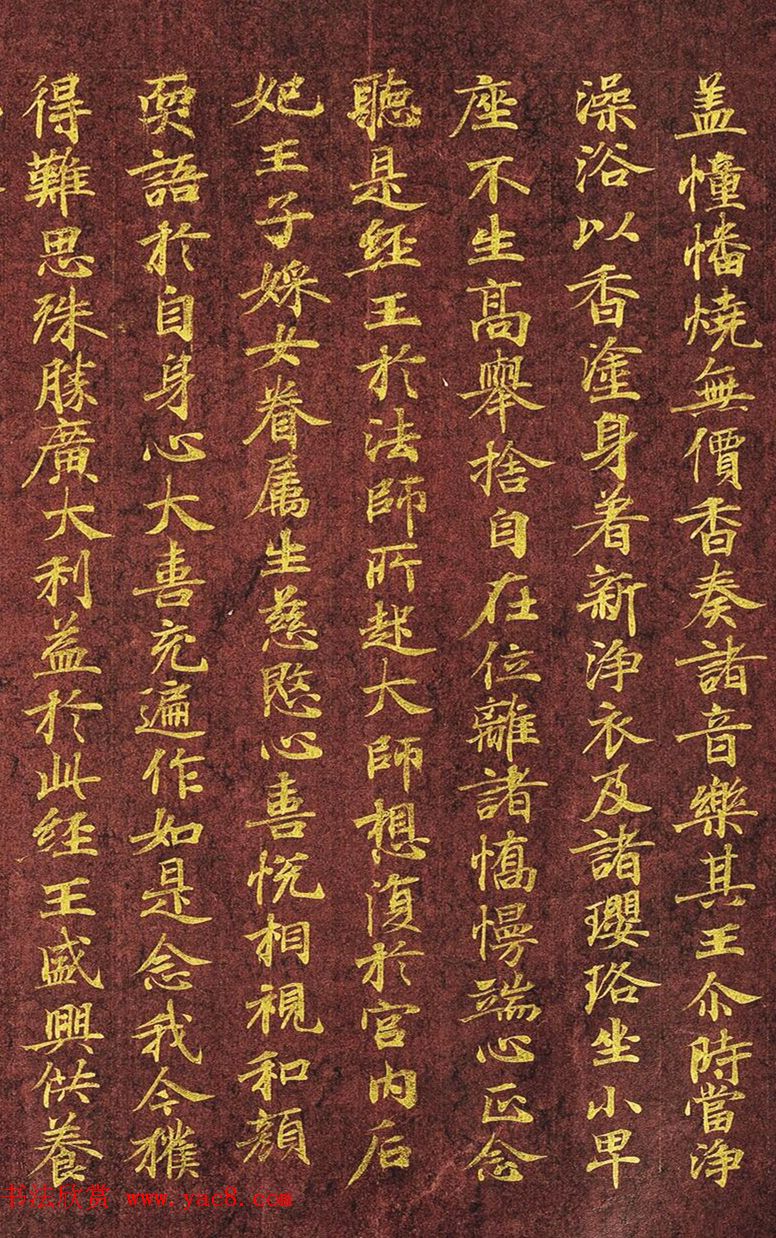 盖憧憣燒無價香奏諸音樂其王尒時當淨
澡浴以香塗身着新淨衣及諸瓔珞坐小卑
座不生高舉捨自在位離諸憍慢端心正念
聽是經王於法師所起大師想復於宮內后
妃王子婇女眷属生慈愍心喜恱相視和顏
耎語於自身心大喜充遍作如是念我今獲
得難思殊勝廣大利益於此經王盛興供養
书法欣赏 www.yac8.com